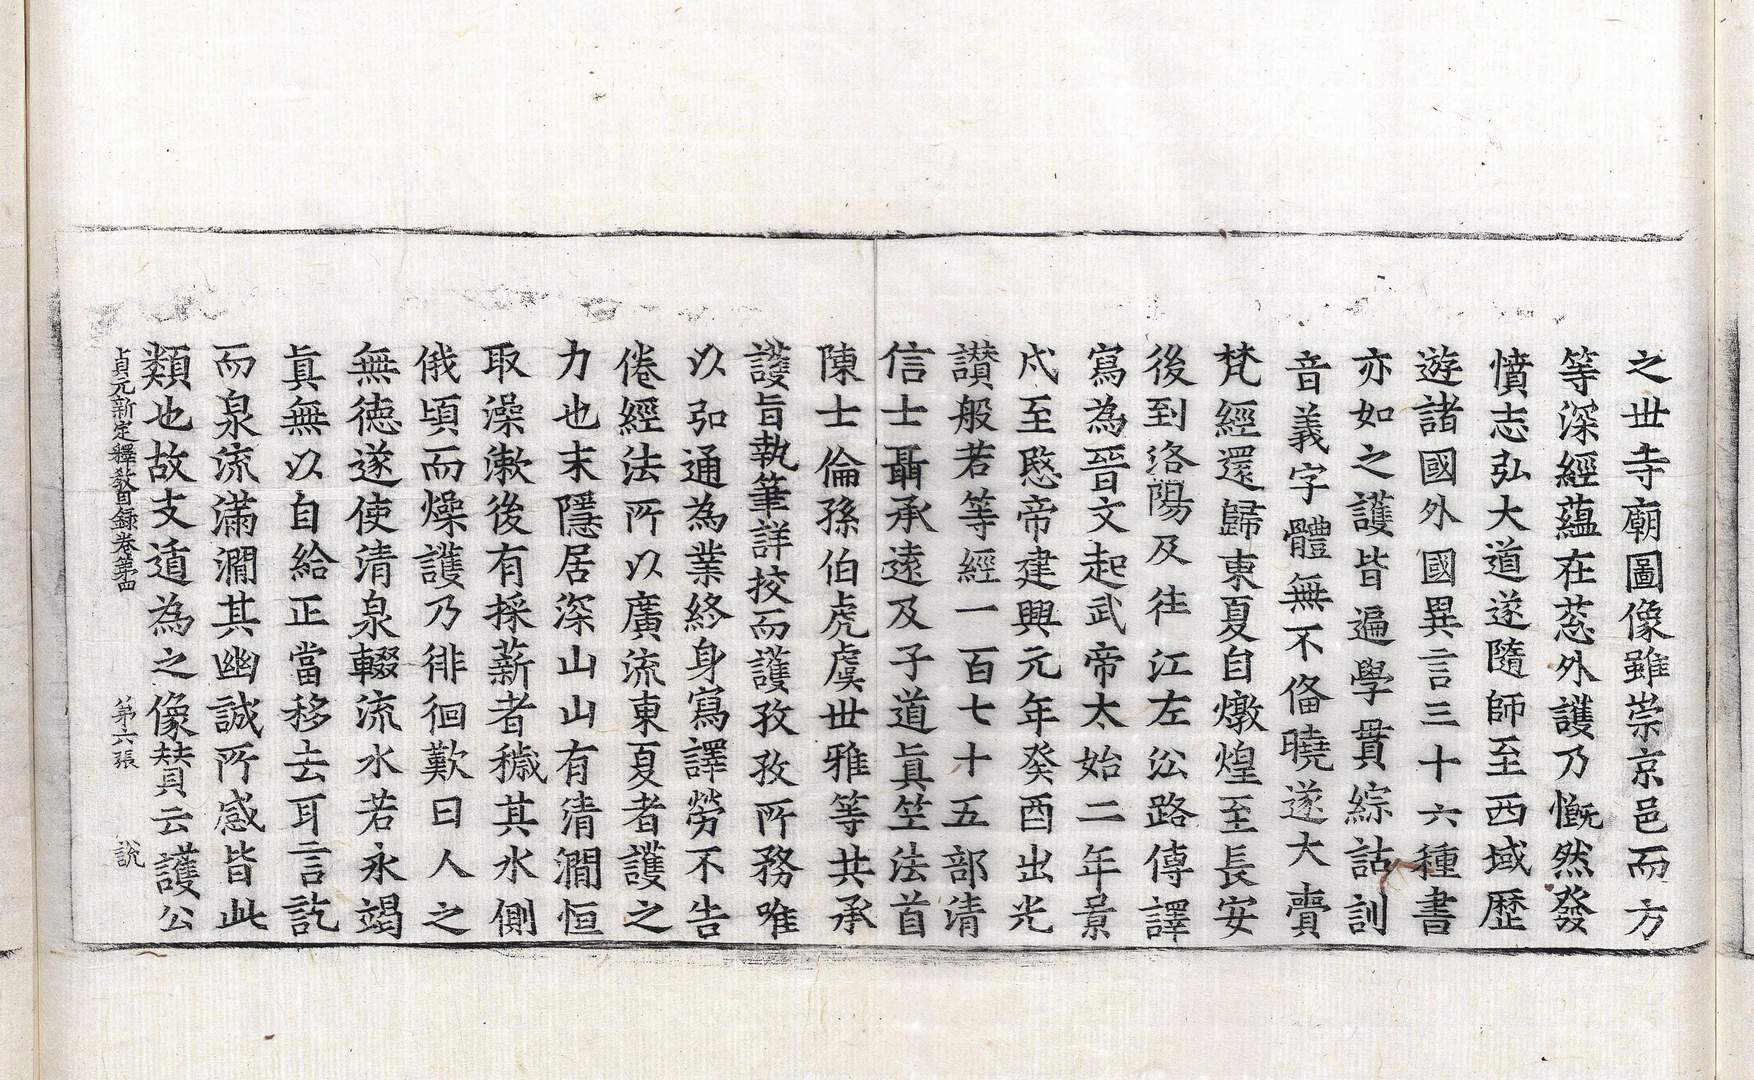 之世寺廟圖像雖崇京邑而方
等深經蘊在葱外護乃慨然發
憤志弘大道遂隨師至西域歷
遊諸國外國異言三十六種書
亦如之護皆遍學貫綜詁訓
音義字體無不俻曉遂大賷
梵經還歸東夏自燉煌至長安
後到洛陽及往江左㳂路傳譯
寫為晉文起武帝太始二年景
戍至愍帝建興元年癸酉出光
讃般若等經一百七十五部清
信士聶承遠及子道眞笁法首
陳士倫孫伯虎虞世雅等共承
護旨執筆詳挍而護孜孜所務唯
以弘通為業終身寫譯勞不告
倦經法所以廣流東夏者護之
力也末隱居深山山有清澗恒
取澡漱後有採薪者穢其水側
俄頃而燥護乃徘徊歎曰人之
無徳遂使清泉輟流水若永竭
眞無以自給正當移去耳言訖
而泉流滿澗其幽誠所感皆此
類也故支遁為之像賛云護公
貞元新定釋教目録卷第四 第六張 說